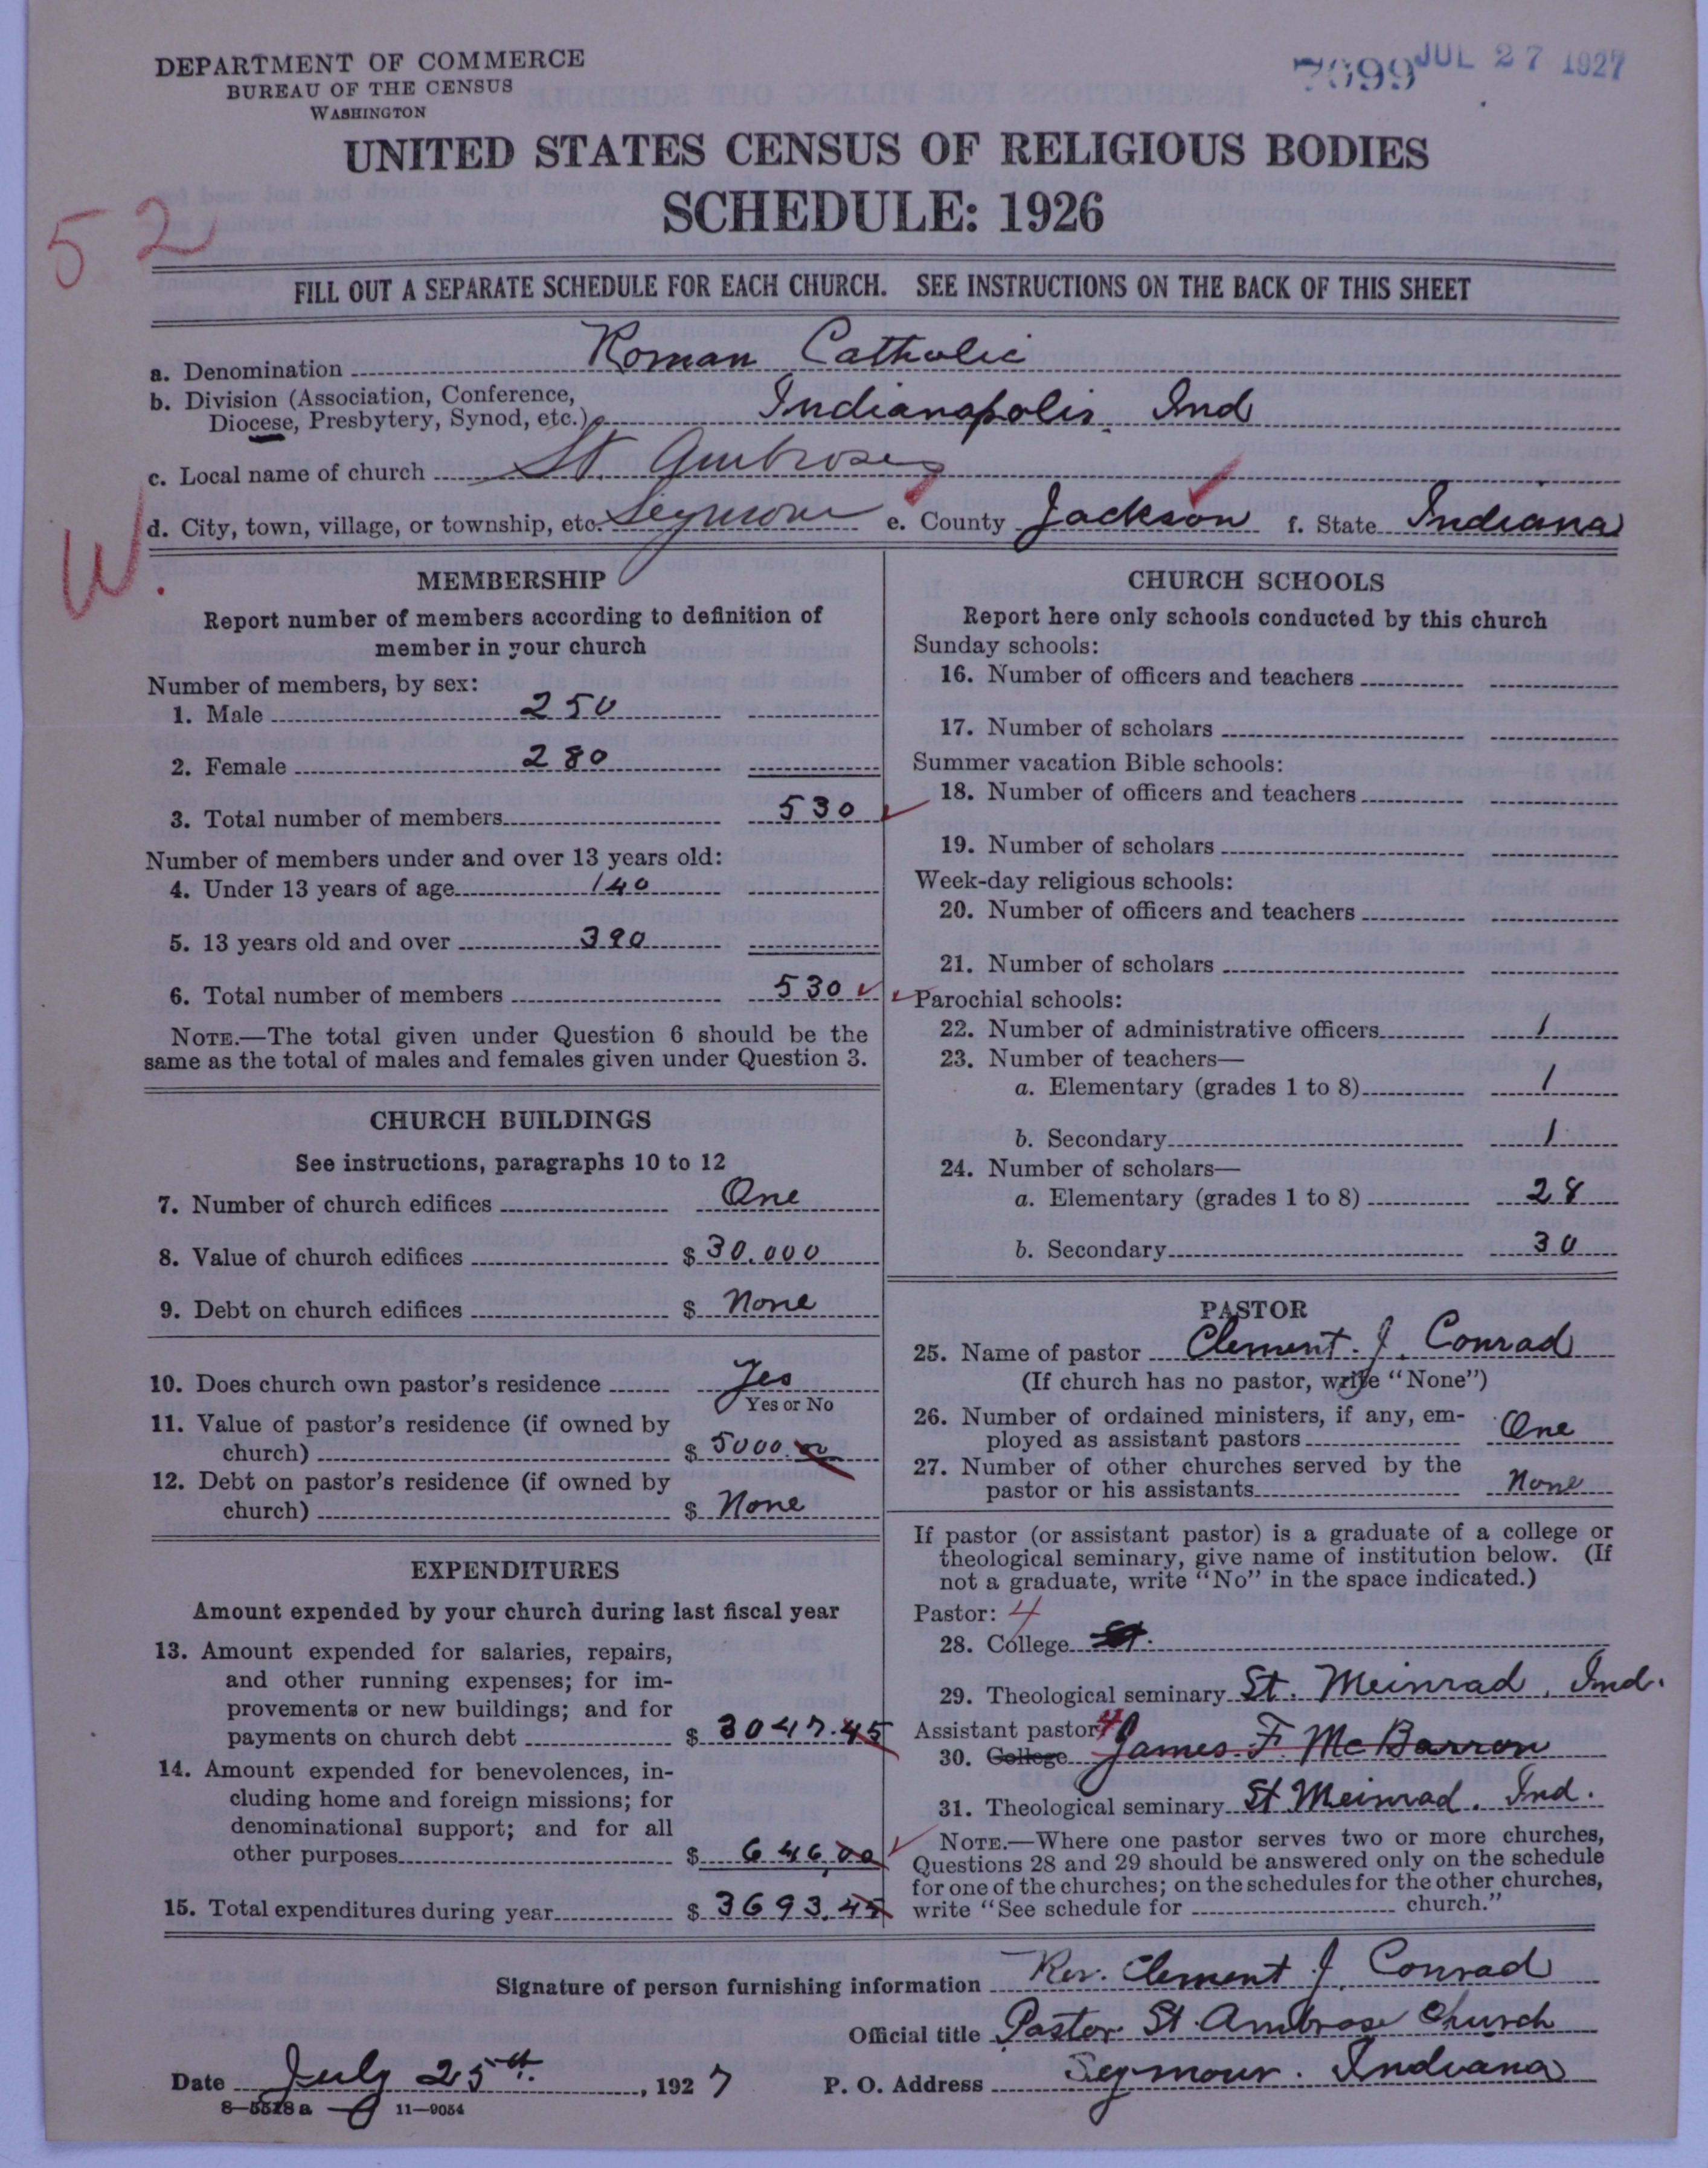 DEPARTMENT OF COMMERCE
BUREAU OF THE CENSUS
WASHINGTON
7099 JUL 27 1927
UNITED STATES CENSUS OF RELIGIOUS BODIES
SCHEDULE: 1926
52
FILL OUT A SEPARATE SCHEDULE FOR EACH CHURCH. SEE INSTRUCTIONS ON THE BACK OF THIS SHEET
a. Denomination Roman Catholic
b. Division (Association, Conference,
Diocese, Presbytery, Synod, etc.) Indianapolis. Ind
c. Local name of church St. Ambroses
W.
d. City, town, village, or township, etc. Seymour e. County Jackson f. State Indiana
MEMBERSHIP
Report number of members according to definition of
member in your church
Number of members, by sex:
1. Male 250
2. Female 280
3. Total number of members 530
Number of members under and over 13 years old:
4. Under 13 years of age 140
5. 13 years old and over 390
6. Total number of members 530
NOTE.—The total given under Question 6 should be the
same as the total of males and females given under Question 3.
CHURCH BUILDINGS
See instructions, paragraphs 10 to 12
7. Number of church edifices One
8. Value of church edifices $ 30.000
9. Debt on church edifices $ None
10. Does church own pastor's residence Yes
Yes or No
11. Value of pastor's residence (if owned by
church) $ 5000.00
12. Debt on pastor's residence (if owned by
church) $ None
EXPENDITURES
Amount expended by your church during last fiscal year
13. Amount expended for salaries, repairs,
and other running expenses; for im-
provements or new buildings; and for
payments on church debt $ 3047.45
14. Amount expended for benevolences, in-
cluding home and foreign missions; for
denominational support; and for all
other purposes $ 646,00
15. Total expenditures during year $ 3693.45
CHURCH SCHOOLS
Report here only schools conducted by this church
Sunday schools:
16. Number of officers and teachers
17. Number of scholars
Summer vacation Bible schools:
18. Number of officers and teachers
19. Number of scholars
Week-day religious schools:
20. Number of officers and teachers
21. Number of scholars
Parochial schools:
22. Number of administrative officers 1
23. Number of teachers—
a. Elementary (grades 1 to 8) 1
b. Secondary 1
24. Number of scholars—
a. Elementary (grades 1 to 8) 28
b. Secondary 30
PASTOR
25. Name of pastor Clement. J. Conrad
(If church has no pastor, write "None")
26. Number of ordained ministers, if any, em-
ployed as assistant pastors One
27. Number of other churches served by the
pastor or his assistants None
If pastor (or assistant pastor) is a graduate of a college or
theological seminary, give name of institution below. (If
not a graduate, write "No" in the space indicated.)
Pastor: 4
28. College St.
29. Theological seminary St. Meinrad, Ind.
Assistant pastor: 4
30. College James. F. McBarron
31. Theological seminary St Meinrad. Ind.
NOTE.—Where one pastor serves two or more churches,
Questions 28 and 29 should be answered only on the schedule
for one of the churches; on the schedules for the other churches,
write "See schedule for church."
Signature of person furnishing information Rev. Clement J. Conrad
Official title Pastor St. Ambrose Church
Date July 25th. , 1927 P. O. Address Seymour. Indiana
8—5518 a 11—9054